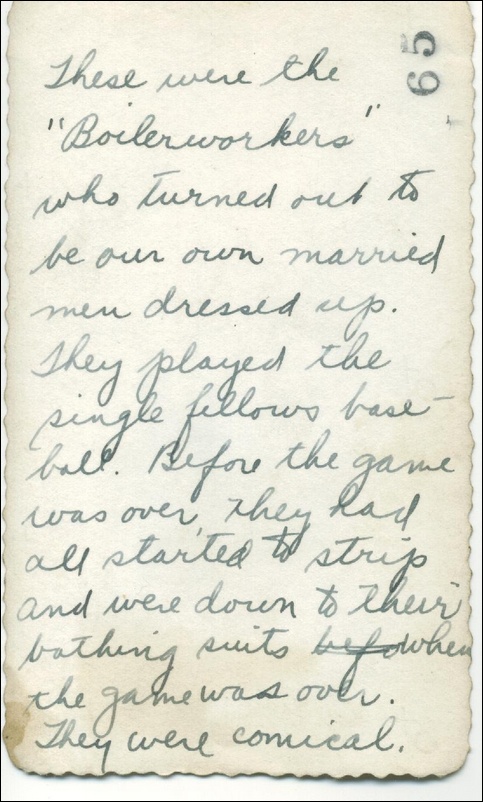 65
These were the
"Boilerworkers"
who turned out to
be our own married
men dressed up.
They played the
single fellows base-
ball. Before the game
was over, they had
all started to strip
and were down to their
bathing suits bef when
the game was over.
They were comical.